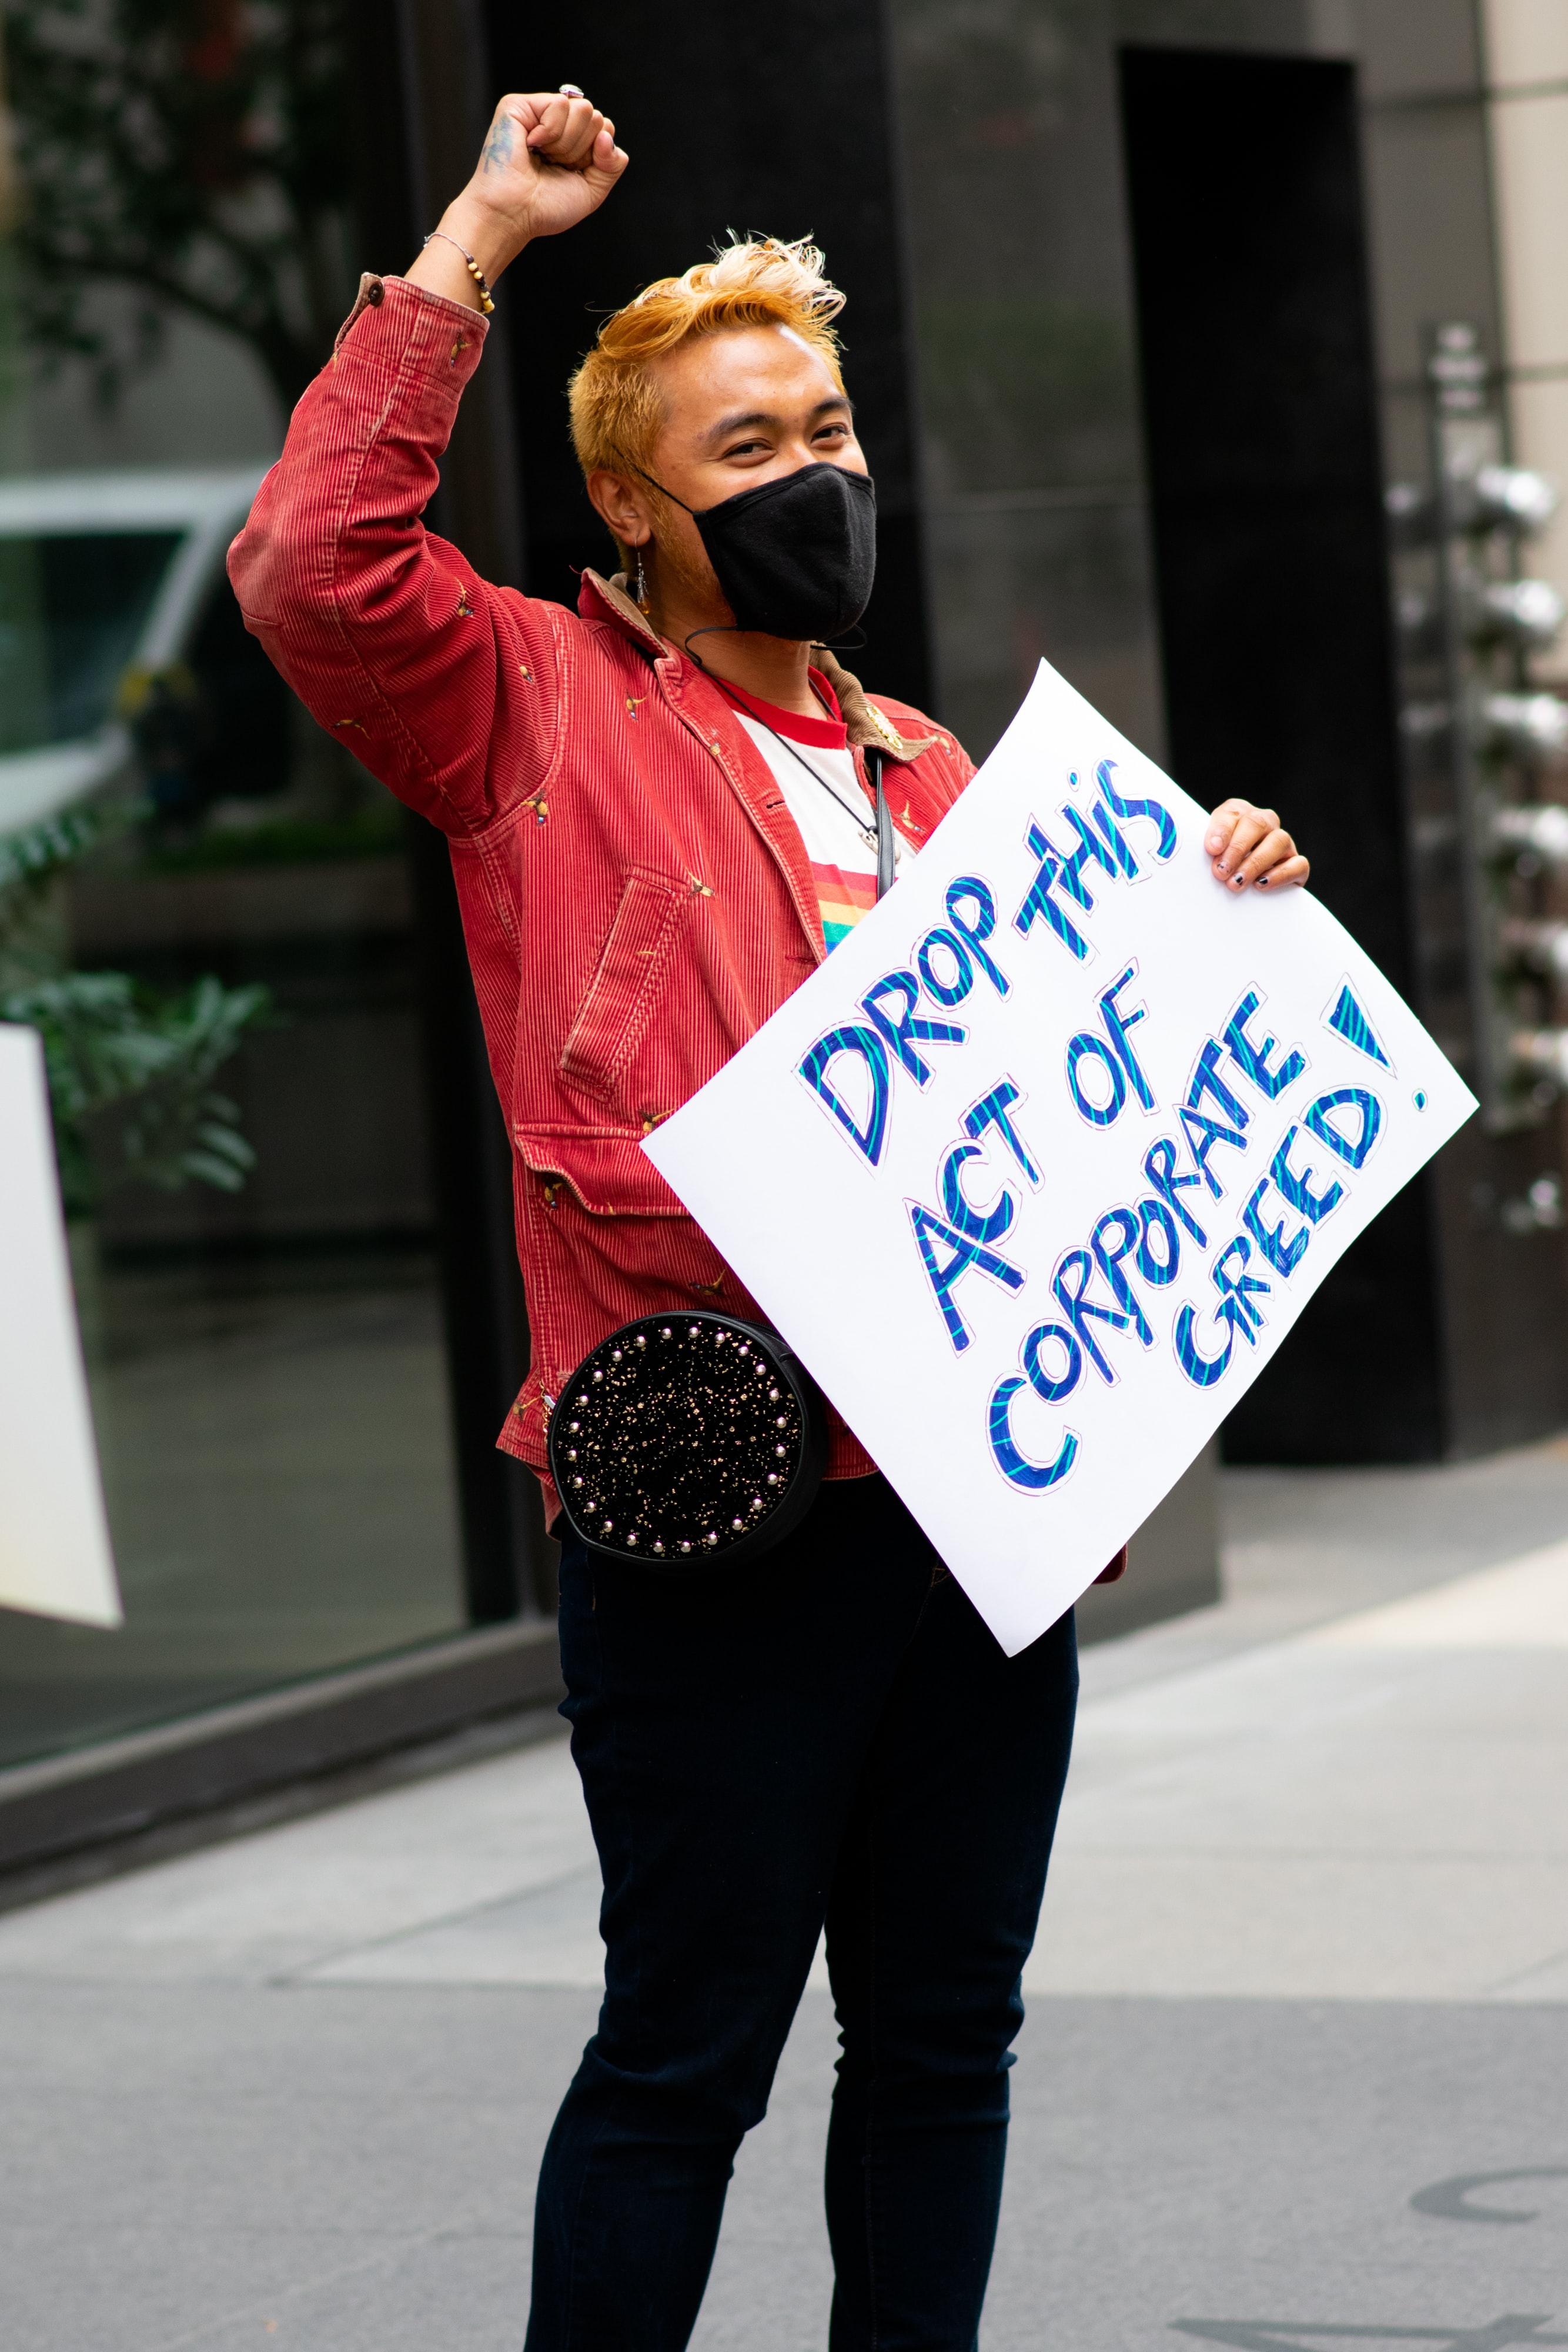 DROP THiS
ACT OF
CORPORATE
GREED!